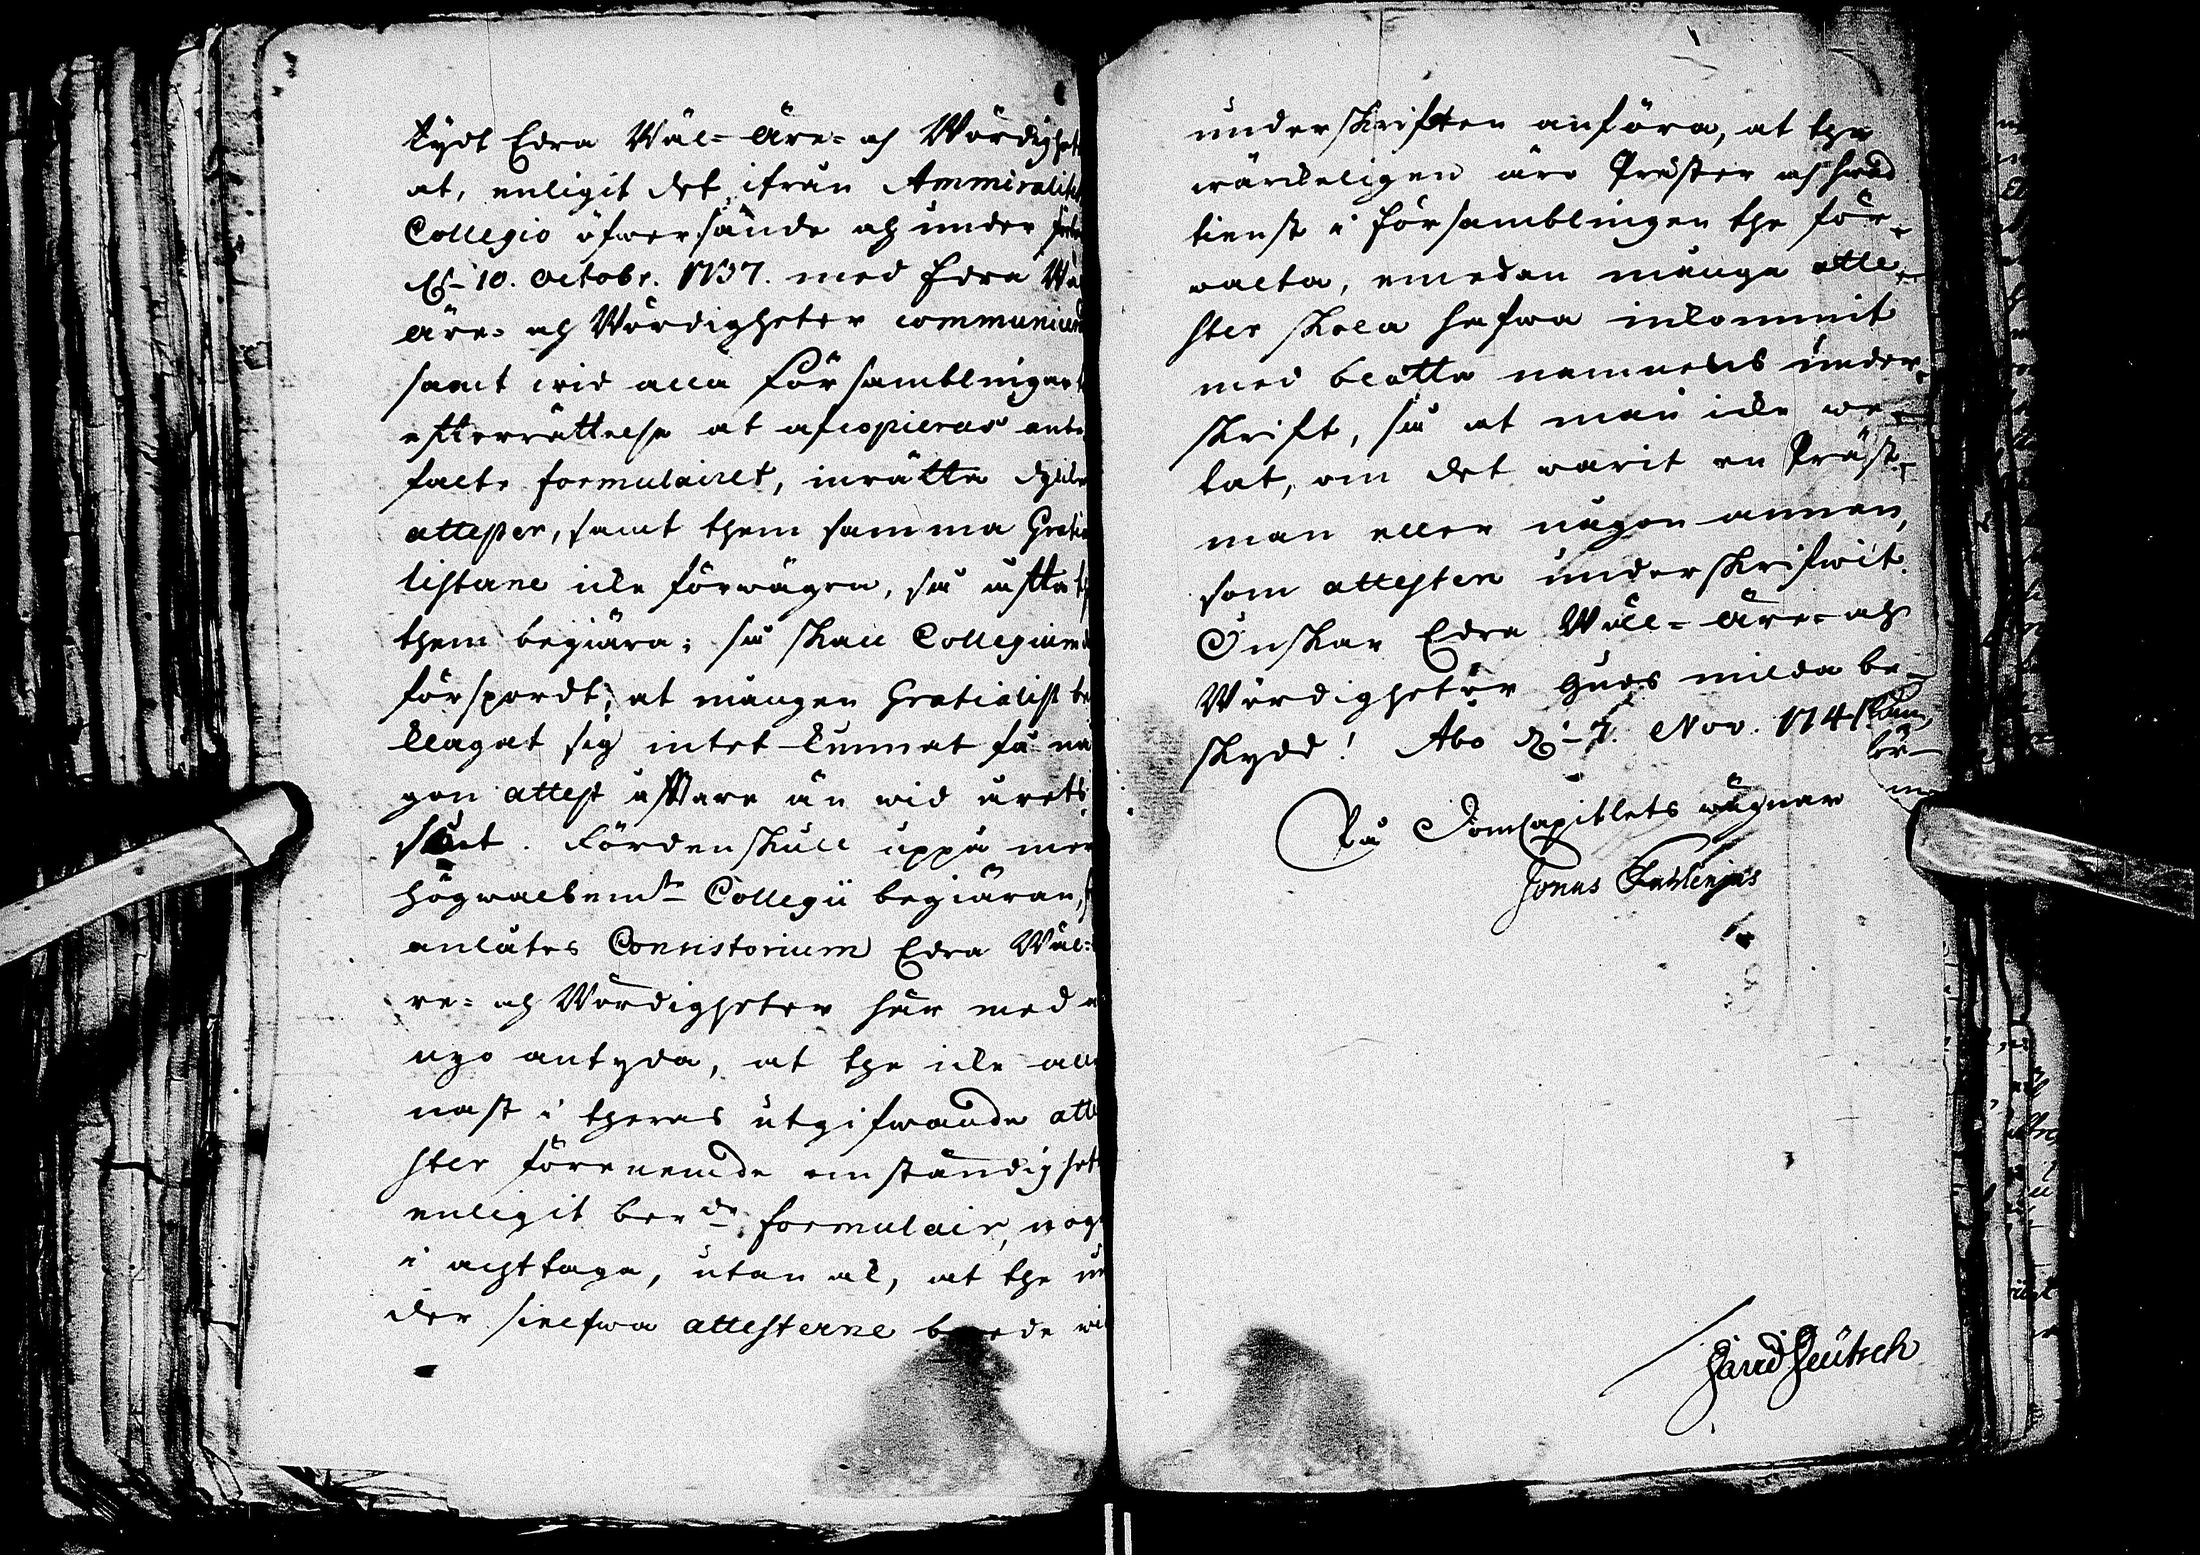 tydt Edra Wäl- Äre- och Wördighet
at, enligit det ifrån Ammiralitet
Collegio öfwersände och under
d. 10. Octobr. 1737. med Edra Wä
äre- och Wördigheter communicer
samt wid alla Församblingar t
efterrättelse at afcopieras anbe
falte formulairet, inrätta dylike
attester, samt them samma Gratia
listerne icke förwägra, så ofta t
them begiära; så skall Collegium
förspordt, at mången Gratialist be
klagat sig intet kunnat få nå
gon attest oftare än wid årets
slut. Fördenskull uppå mer
högwälbemte Collegii begiäran,
anlåtes Consistorium Edra Wäl-
re- och Wördigheter här med
nyo antyda, at the icke alle
nast i theras utgifwande atte
ster förenemde omständighet
enligit berde formulair, nog
i achttaga, utan ok, at the un
der sielfwa attesterne både wi
underskriften anföra, at the
wärckeligen äro Präster och hwad
tienst i Församblingen the för-
walta, emedan många atte-
ster skola hafwa inkommit
med blotta namnets under-
skrift, så at man icke we-
tat, om det warit en Präst-
man eller någon annan,
som attesten underskrifwit.
Önskar Edra Wäll- Äre- och
Wördigheter Guds milda be-
skydd! Åbo d. 7. Nov. 174
På DomCapitlets wägnar
Jonas Fahlenius
David Deutsch